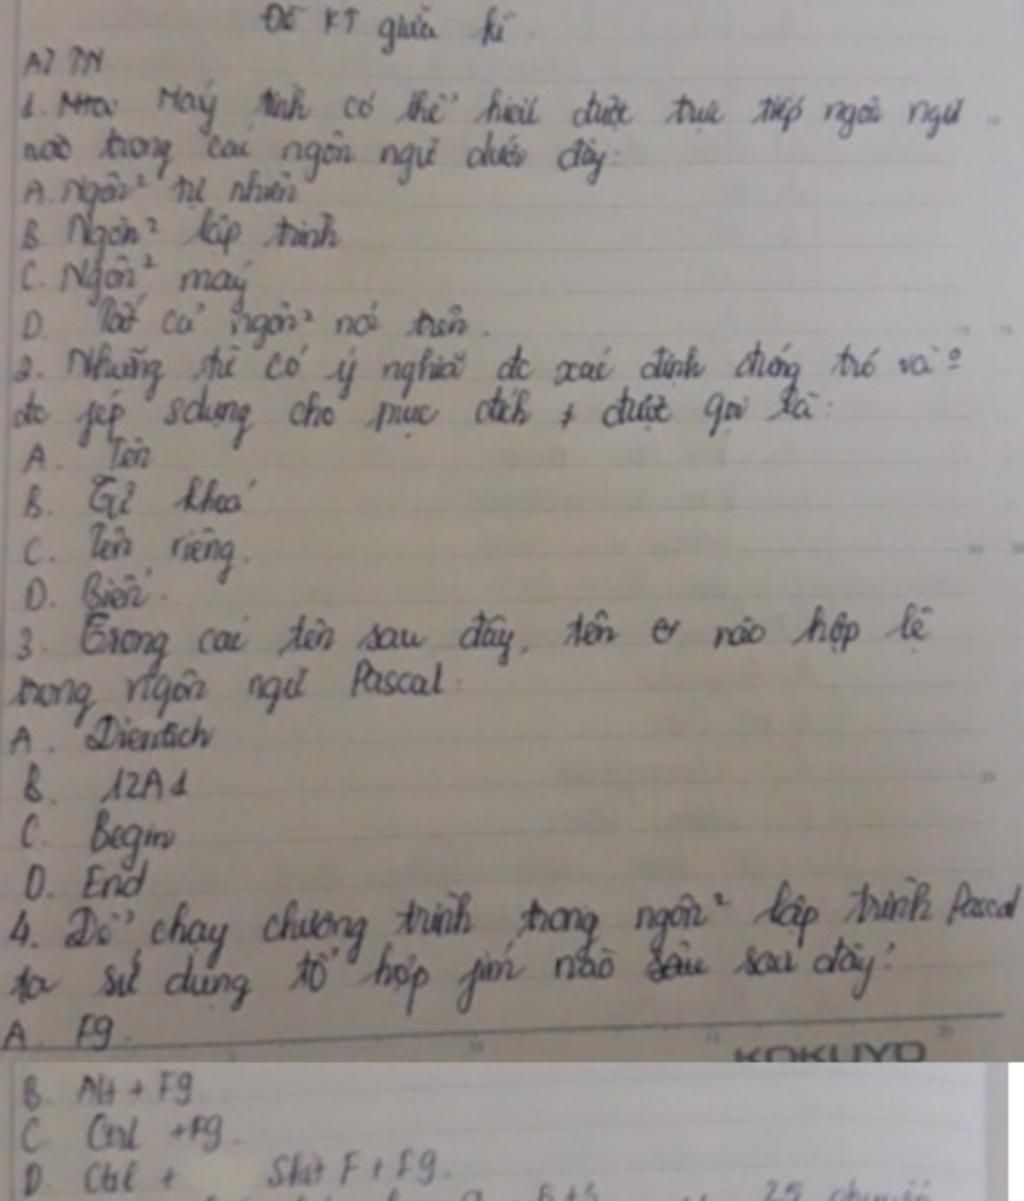 ĐỀ KT giữa kì
A) TN
1. Máy tính có thể hiểu được trực tiếp ngôn ngữ
nào trong các ngôn ngữ dưới đây:
A. Ngôn² tự nhiên
B. Ngôn² lập trình
C. Ngôn² máy
D. Tất cả ngôn² nói trên.
2. Những từ có ý nghĩa đc xác định trước và
đc sdụng cho mục đích được gọi là:
A. Tên
B. Từ khoá
C. Tên riêng.
D. Biến.
3. Trong các tên sau đây, tên nào hợp lệ
trong ngôn ngữ Pascal:
A. Dientich
B. 12A1
C. Begin
D. End
4. Để chạy chương trình trong ngôn² lập trình Pascal
ta sử dụng tổ hợp phím nào sau đây:
A. F9.
KOKUYO
B. Alt + F9
C. Ctrl + F9.
D. Ctrl + Shift F + F9.